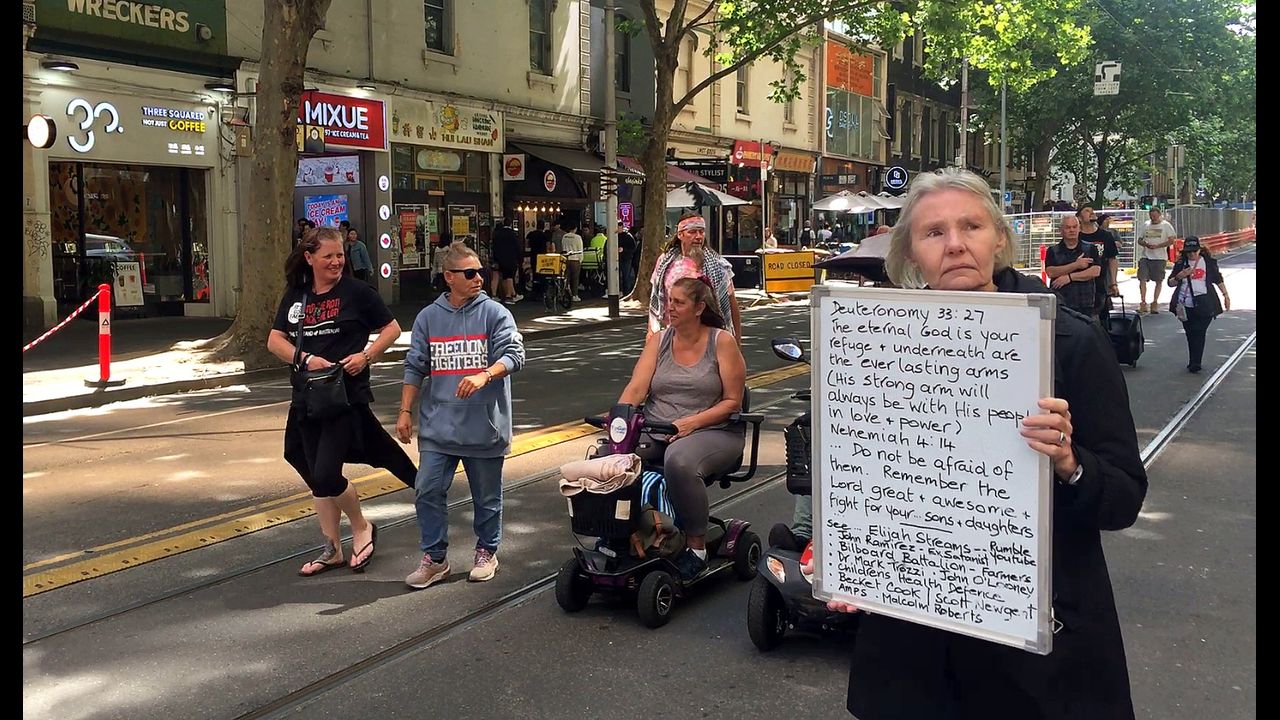 WRECKERS
33.
THREE SQUARED
NOT JUST COFFEE
MIXUE
ICE CREAM & TEA
HUI LAU SHAN
ICE CREAM
HAIR STYLIST
ROAD CLOSED
FREEDOM
FIGHTERS
Deuteronomy 33:27
The eternal God is your
refuge + underneath are
the everlasting arms
(His strong arm will
always be with His peop
in love + power)
Nehemiah 4:14
... Do not be afraid of
them. Remember the
Lord great + awesome +
fight for your... sons + daughters
see... Elijah Streams -- Rumble
John Ramirez - Ex Satanist Youtube
Bilboard Battalion - Farmers
Dr Mark Trozzi - John O'Looney
Childrens Health Defence
Becket Cook / Scott Newgent
AMPS. Malcolm Roberts